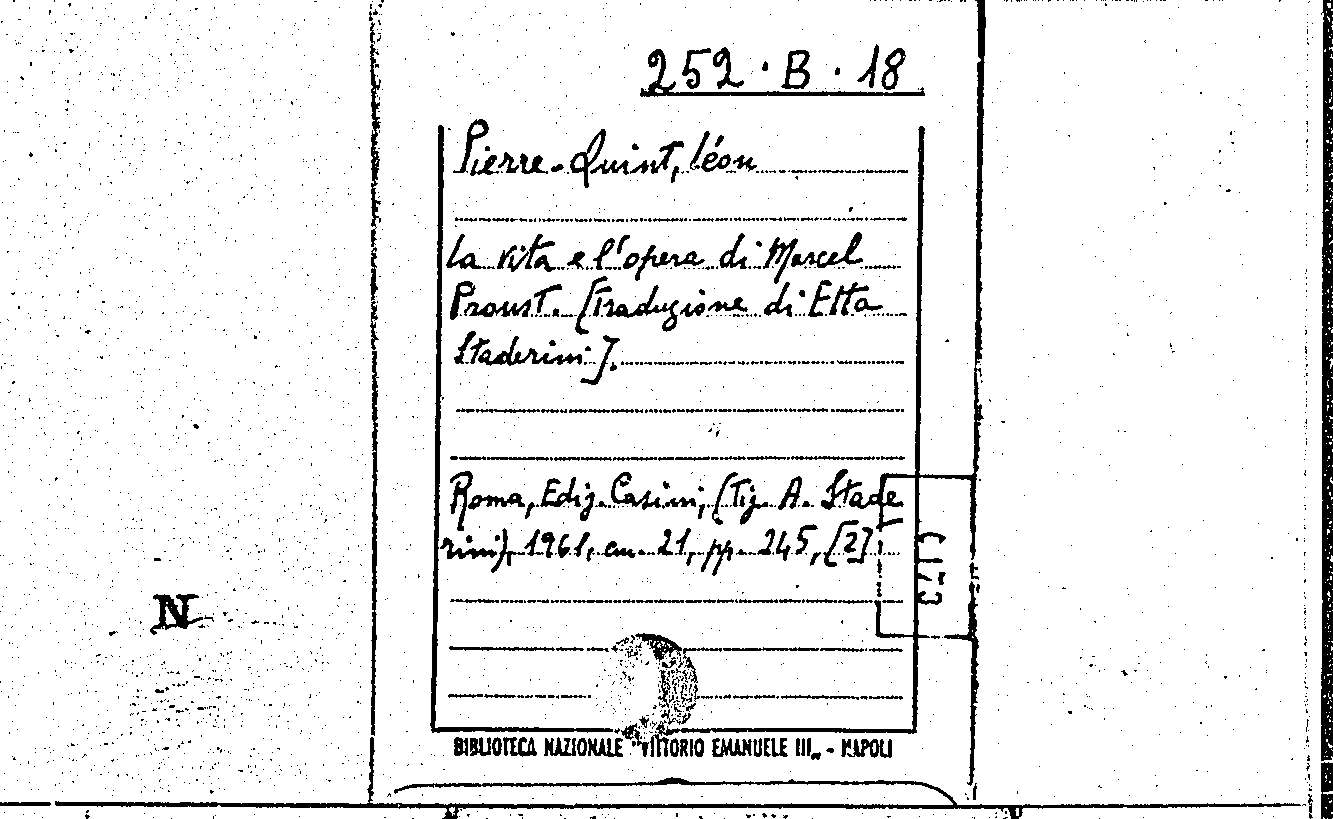 252 · B · 18
Pierre-Quint, Léon
La vita e l'opera di Marcel
Proust. [Traduzione di Etta
Staderini].
Roma, Ediz. Casini, (Tip. A. Stade
rini), 1961, cm. 21, pp. 245, [2]
N
BIBLIOTECA NAZIONALE "VITTORIO EMANUELE III„ - NAPOLI